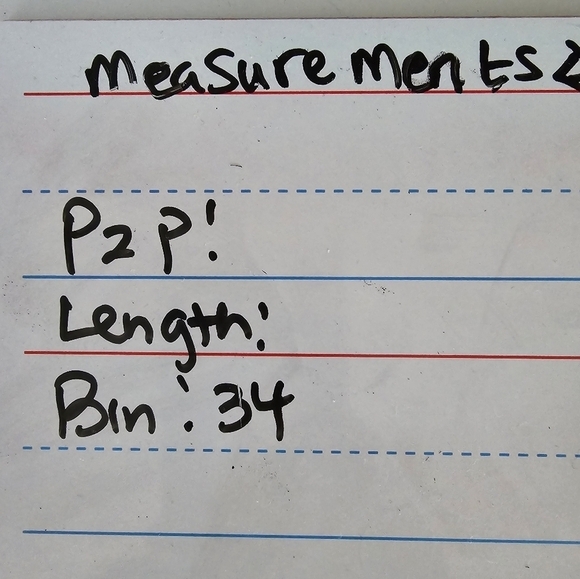 measurements
P2P:
Length:
Bin: 34